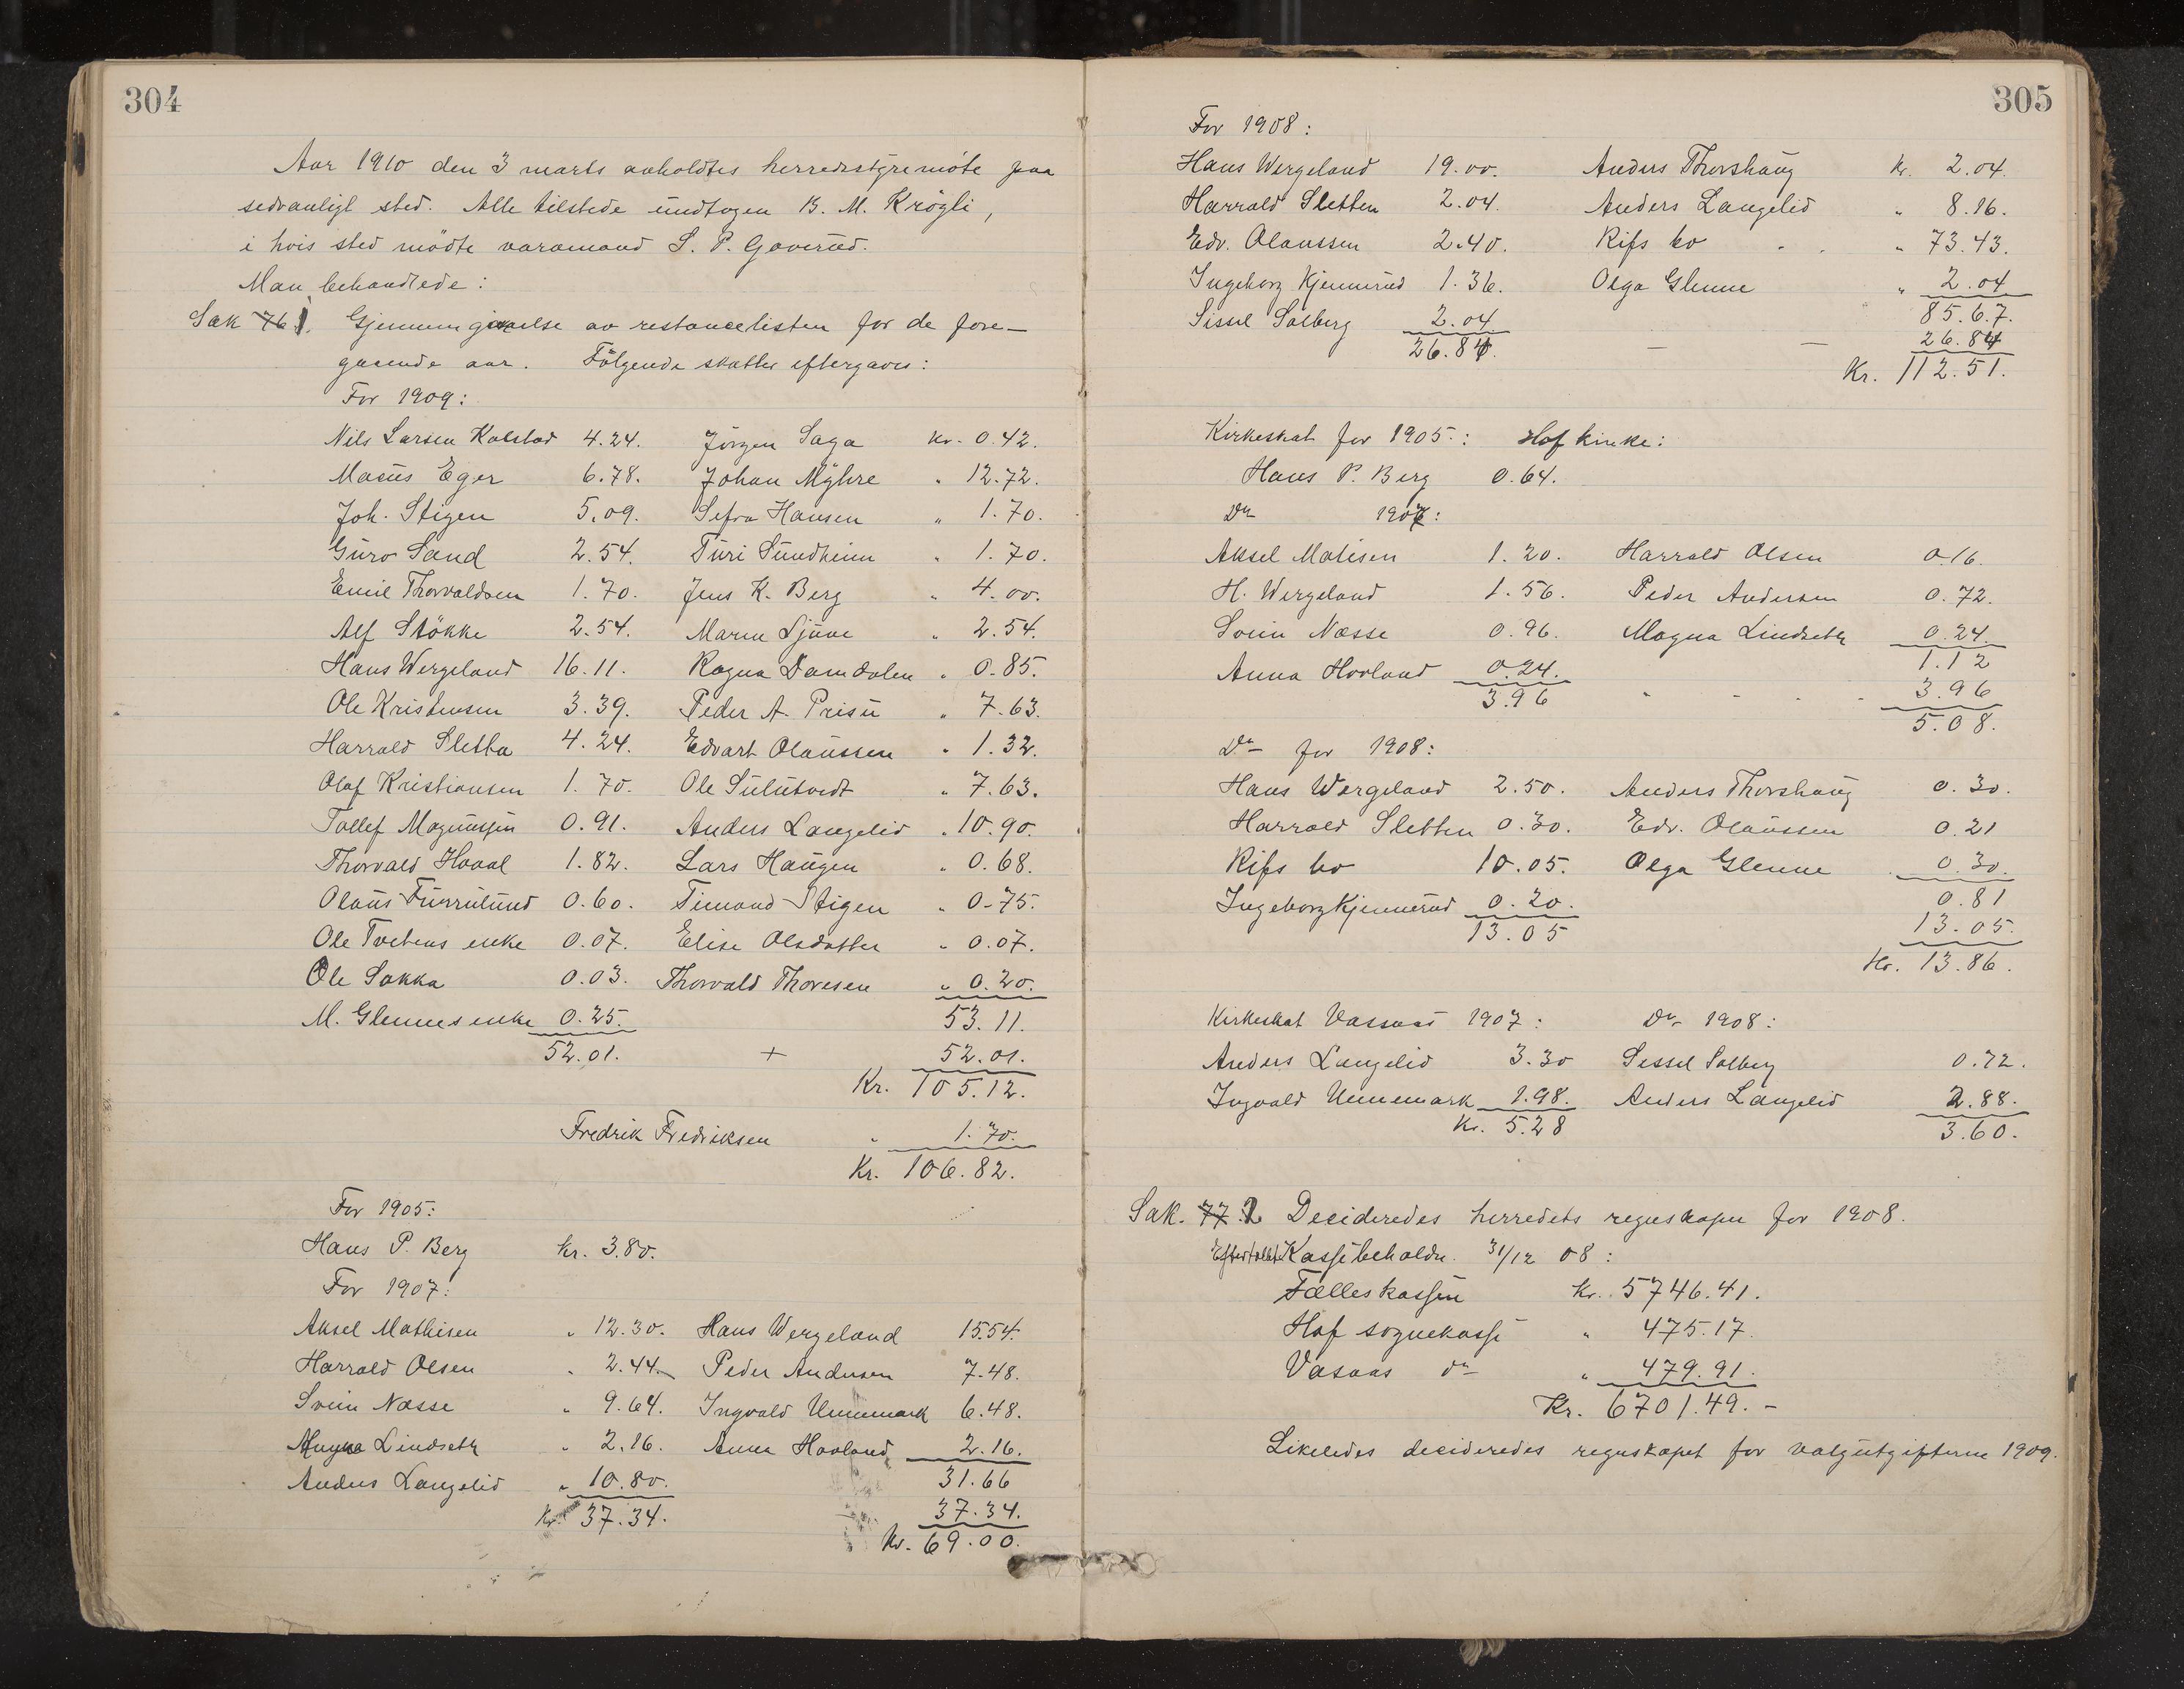 304
Aar 1910 den 3 marts avholdtes herredsstyremöte paa
sedvanligt sted. Alle tilstede undtagen B. M. Krögli,
i hvis sted mödte varamand S. P. Goverud.
Man behandlede:
Sak 76 1. Gjennemgaaelse av restancelisten for de fore-
gaaende aar. Fölgende skatter eftergaves:
For 1909:
Nils Larsen Kolstad 4.24. Jörgen Saga kr. 0.42.
Macus Eger 6.78. Johan Myhre " 12.72.
Joh. Stigen 5.09. Sefra Hansen " 1.70.
Guro Sand 2.54. Turi Sundheim " 1.70.
Emil Thorvaldsen 1.70. Jens K. Berg " 4.00.
Alf Stökke 2.54. Maren Ljune " 2.54.
Hans Wergeland 16.11. Ragna Damdalen " 0.85.
Ole Kristensen 3.39. Peder A. Prisu " 7.63.
Harrald Sletta 4.24. Edvart Olaussen " 1.32.
Olaf Kristiansen 1.70. Ole Sulutvedt " 7.63.
Tollef Magnussen 0.91. Anders Langelid " 10.90.
Thorvald Hoval 1.82. Lars Haugen " 0.68.
Olaus Furrulund 0.60. Timand Stigen " 0.75.
Ole Tvetens enke 0.07. Elise Olsdatter " 0.07.
Ole Sakka 0.03. Thorvald Thoresen " 0.20.
M. Glennes enke 0.25. 53.11.
52.01. + 52.01.
Kr. 105.12.
Fredrik Fredriksen " 1.70.
Kr. 106.82.
For 1905:
Hans P. Berg kr. 3.80.
For 1907:
Aksel Mathisen " 12.30. Hans Wergeland 15.54
Harrald Olsen " 2.44. Peder Andersen 7.48.
Svein Næsse " 9.64. Ingvald Unnemark 6.48.
Magna Lindseth " 2.16. Anna Hovland 2.16.
Anders Langelid " 10.80. 31.66
Kr. 37.34. 37.34.
Kr. 69.00.
305
For 1908:
Hans Wergeland 19.00. Anders Thorshaug kr. 2.04.
Harrald Sletten 2.04. Anders Langelid " 8.16.
Edv. Olaussen 2.40. Rifs bo " 73.43.
Ingeborg Kjennerud 1.36. Olga Glenne " 2.04
Sissel Solberg 2.04 85.67.
26.84. — — 26.84
Kr. 112.51.
Kirkeskat for 1905: Hof kirke:
Hans P. Berg 0.64.
Do 1907:
Aksel Matisen 1.20. Harrald Olsen 0.16.
H. Wergeland 1.56. Peder Andersen 0.72.
Svein Næsse 0.96. Magna Lindseth 0.24.
Anna Hovland 0.24. 1.12
3.96 - - - 3.96
5.08.
Do for 1908:
Hans Wergeland 2.50. Anders Thorshaug 0.30.
Harrald Sletten 0.30. Edv. Olaussen 0.21
Rifs bo 10.05. Olga Glenne 0.30.
Ingeborg Kjennerud 0.20. 0.81
13.05 13.05.
Kr. 13.86.
Kirkeskat Vassaas 1907: Do 1908:
Anders Langelid 3.30 Sissel Solberg 0.72.
Ingvald Unnemark 1.98. Anders Langelid 2.88.
Kr. 5.28 3.60.
Sak. 77. 2 Decideredes herredets regnskaper for 1908.
Kassebeholdn. 31/12 08:
Fælleskassen Kr. 5746.41.
Hof sognekasse " 475.17.
Vasaas do " 479.91.
Kr. 6701.49.-
Likeledes decideredes regnskapet for valgutgifterne 1909.